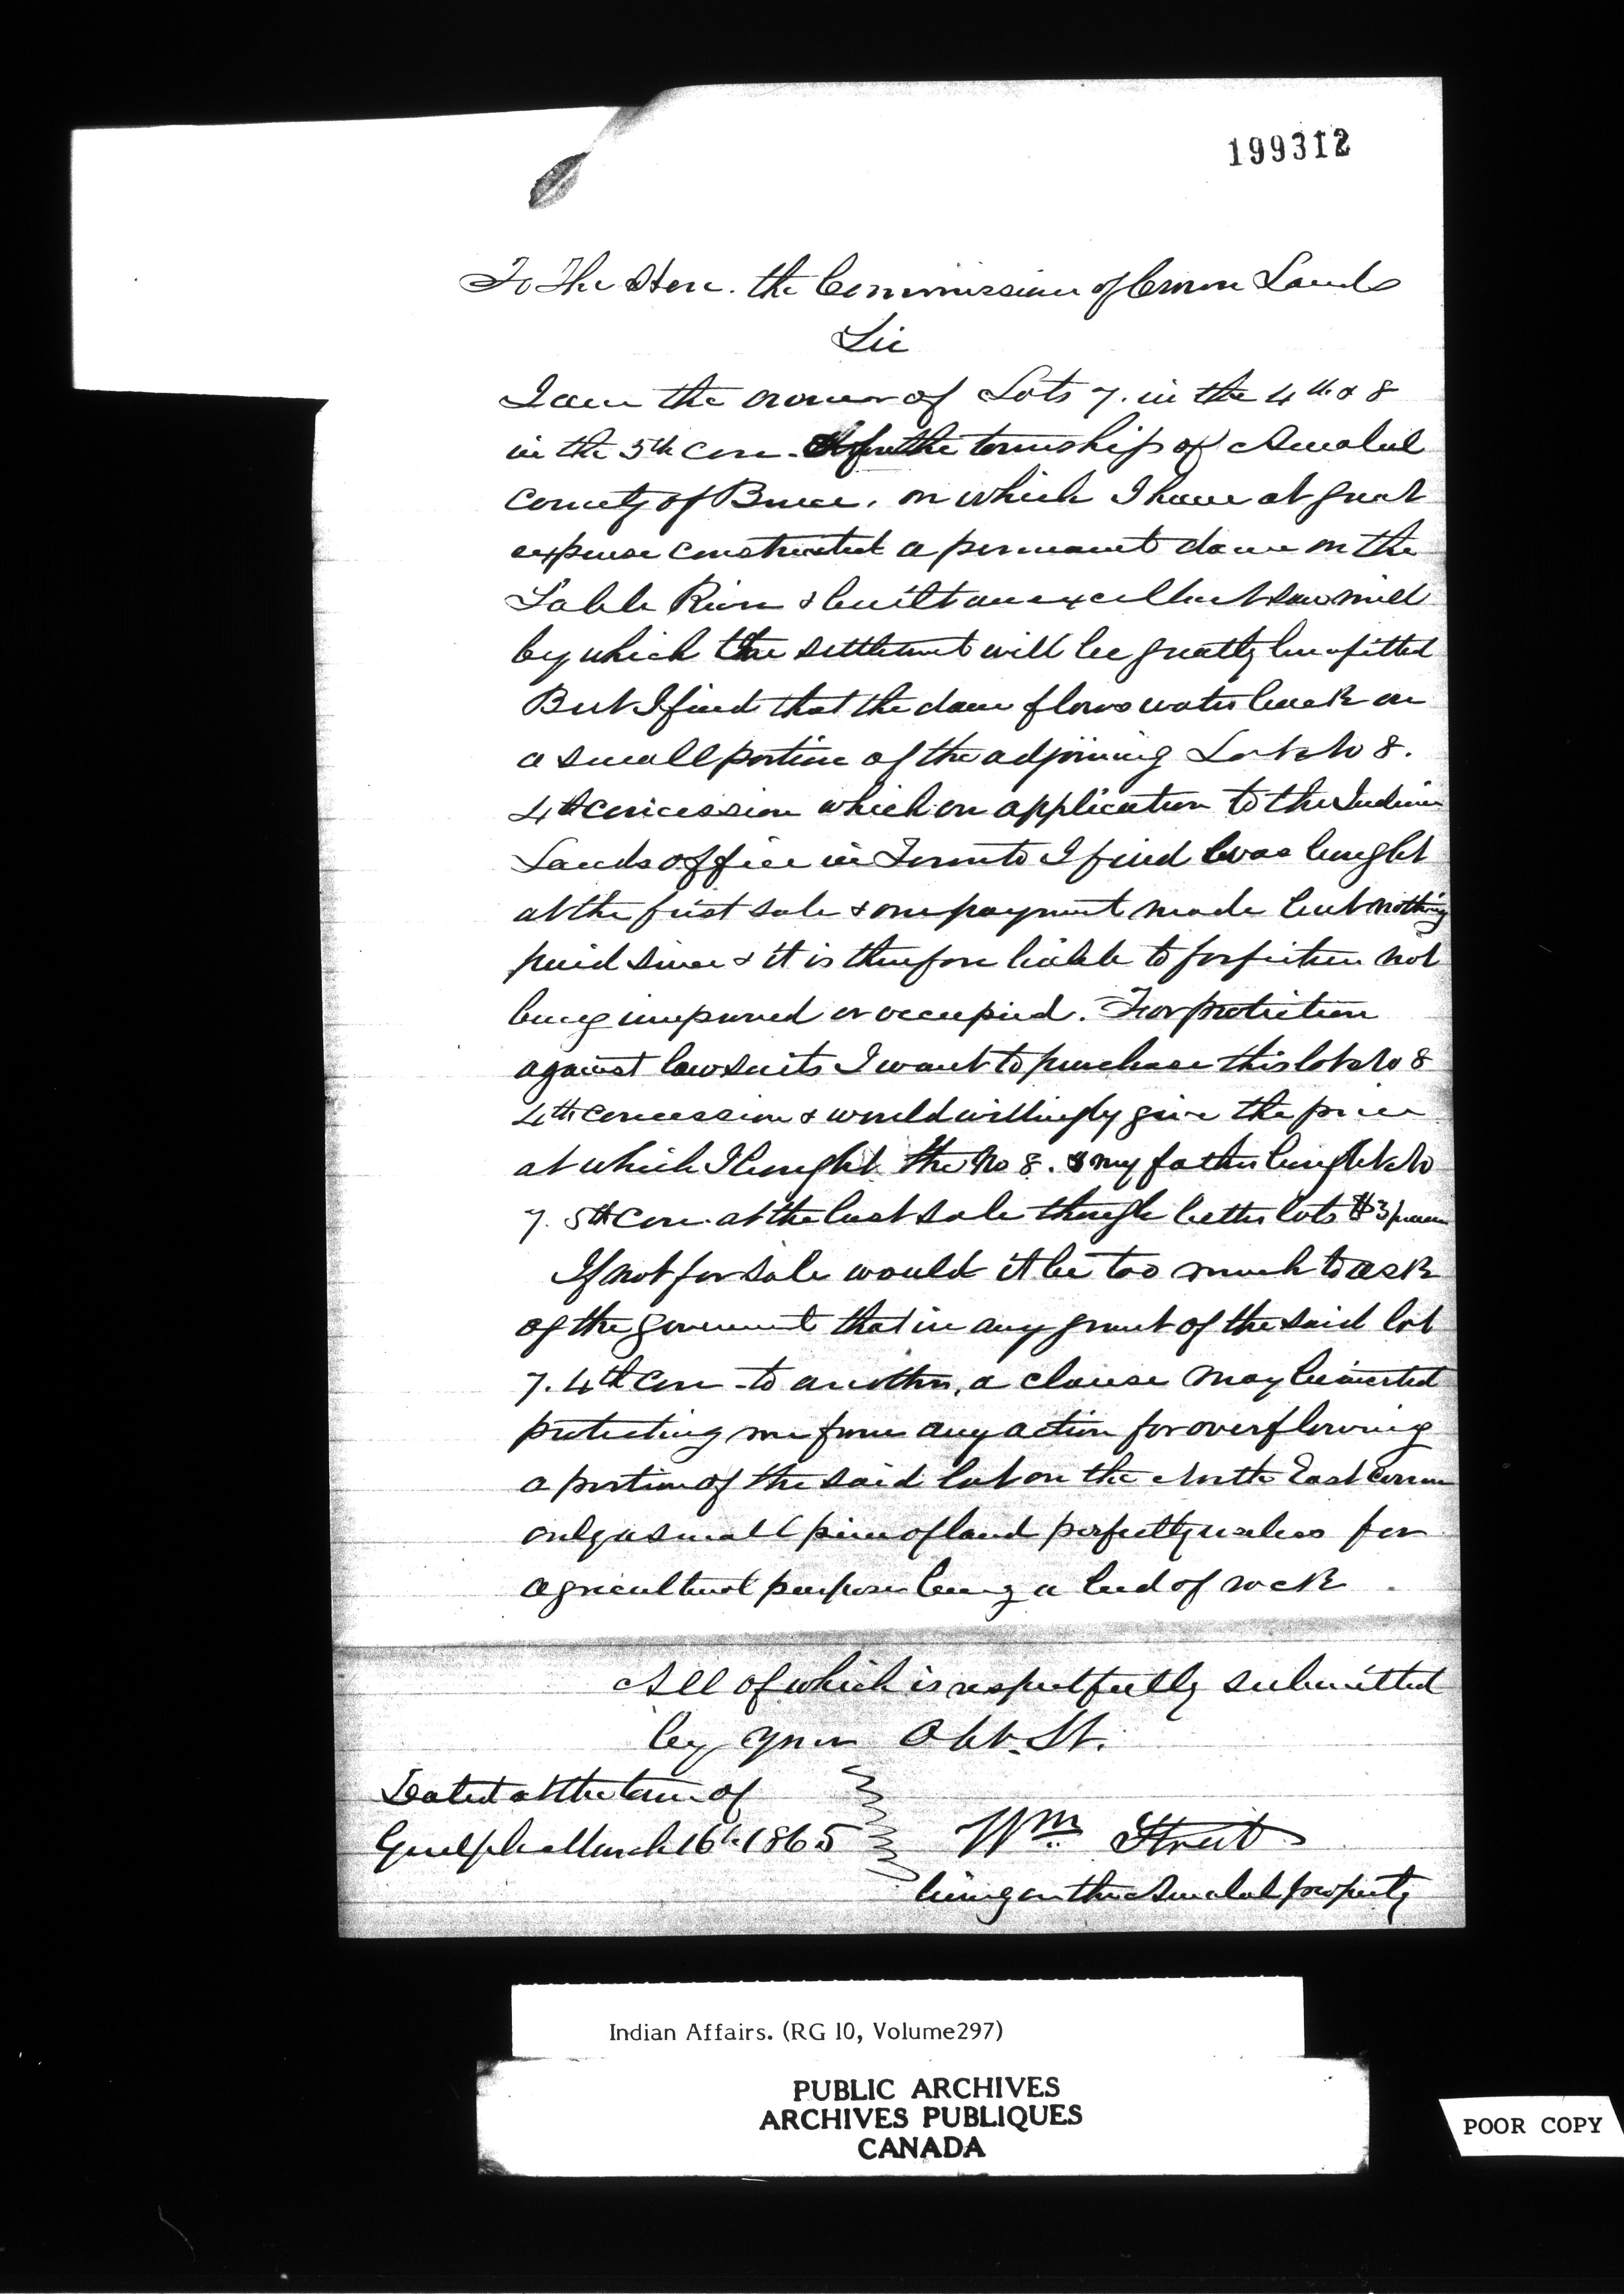 199312
To The Hon. the Commissioner of Crown Lands
Sir
I am the owner of Lots 7. in the 4th & 8
in the 5th con. the township of Amabel
County of Bruce, on which I have at great
expense constructed a permanent dam on the
Sable River & built an excellent saw mill
by which the settlement will be greatly benefitted
But I find that the dam flows water back on
a small portion of the adjoining Lot No 8.
4th concession which on application to the Indian
Lands office in Toronto I find was bought
at the first sale & one payment made but nothing
paid since & it is therefore liable to forfeiture not
being improved or occupied. For protection
against lawsuits I want to purchase this lot No 8
4th concession & would willingly give the price
at which I bought the No 8. & my father bought No
7. 5th Con. at the last sale though better lots $3
If not for sale would it be too much to ask
of the government that in any grant of the said lot
7. 4th Con - to another, a clause may be inserted
protecting me from any action for overflowing
a portion of the said lot on the North East corner
only a small piece of land perfectly useless for
agricultural purposes being a bed of rock.
All of which is respectfully submitted
by your Obt. St.
Dated at the town of
Guelph March 16th 1865
Wm Street
living on the Amabel property
Indian Affairs. (RG 10, Volume297)
PUBLIC ARCHIVES
ARCHIVES PUBLIQUES
CANADA
POOR COPY